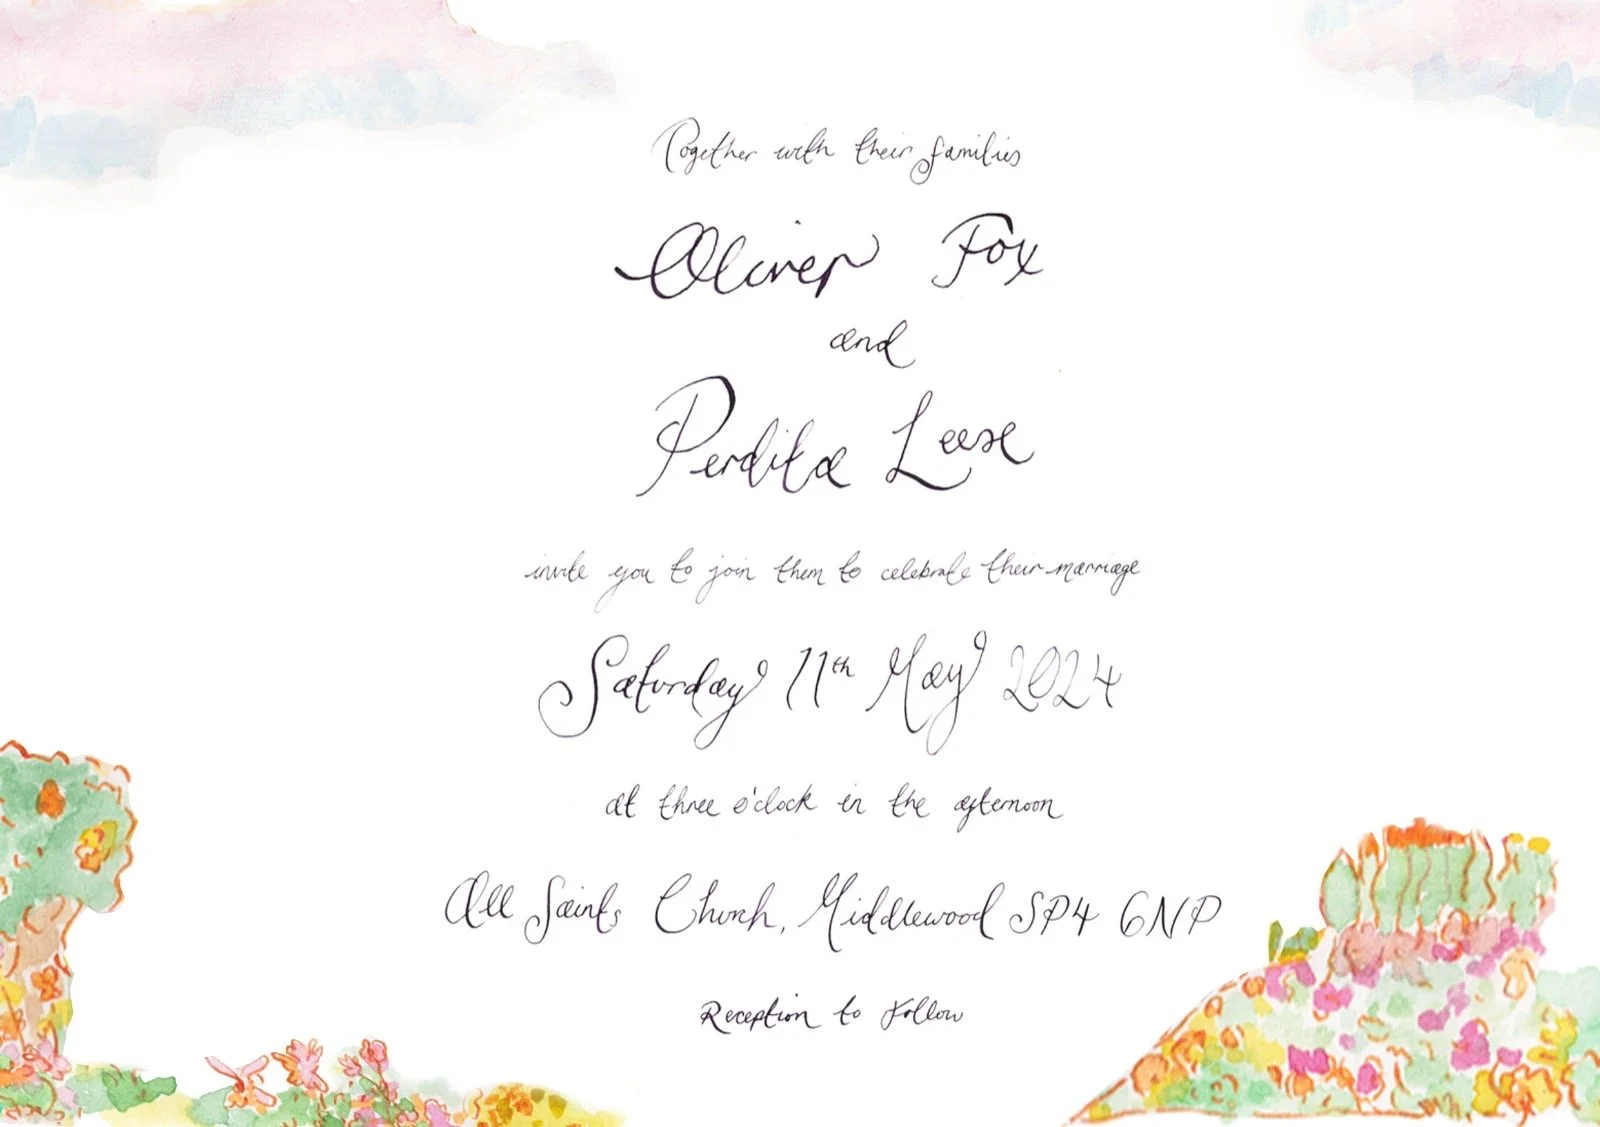 Together with their families
Oliver Fox
and
Perdita Leese
invite you to join them to celebrate their marriage
Saturday 11th May 2024
at three o'clock in the afternoon
All Saints Church, Middlewood SP4 6NP
Reception to follow